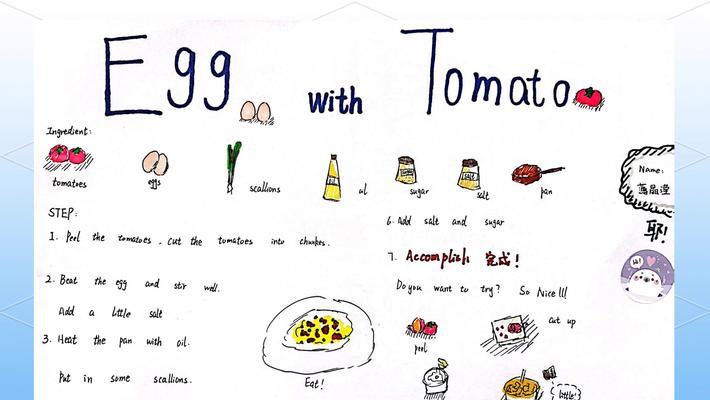 Egg with Tomato
Ingredient:
tomatoes
eggs
scallions
oil
sugar
salt
pan
Name:
STEP:
1. Peel the tomatoes. cut the tomatoes into chunkes.
2. Beat the egg and stir well.
Add a little salt
3. Heat the pan with oil.
Put in some scallions.
Eat!
耶!
Hi!
6. Add salt and sugar
7. Accomplish 完成!
Do you want to try? So Nice!!!
peel
cut up
little!